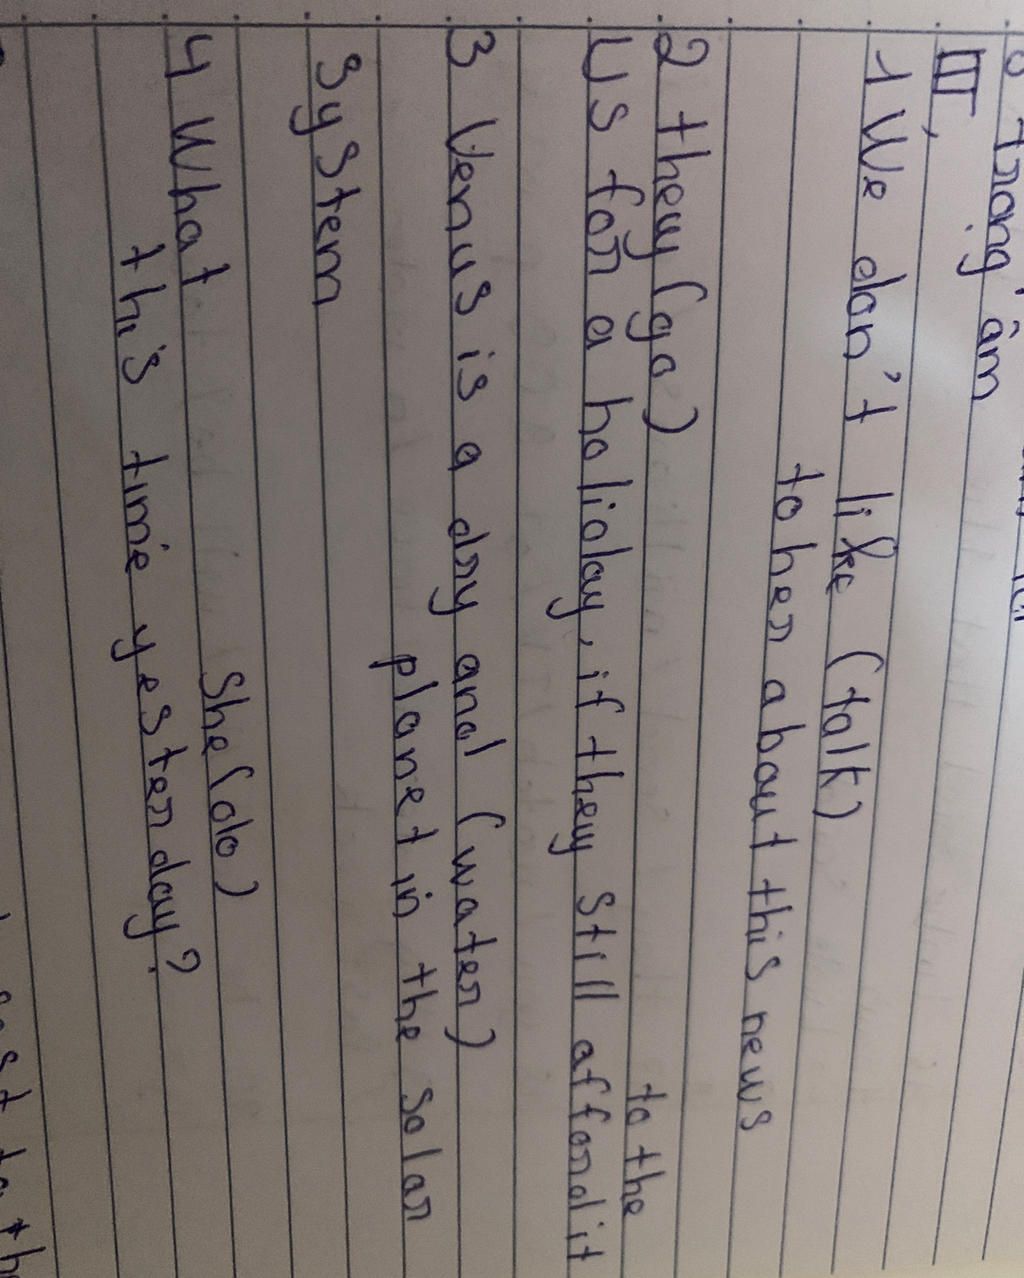 trọng âm
III,
1 We don't like (talk)
to her about this news
2 they (go) to the
US for a holiday, if they still afford it
3 Venus is a dry and (water)
planet in the solar
System
4 What She (do)
this time yesterday?